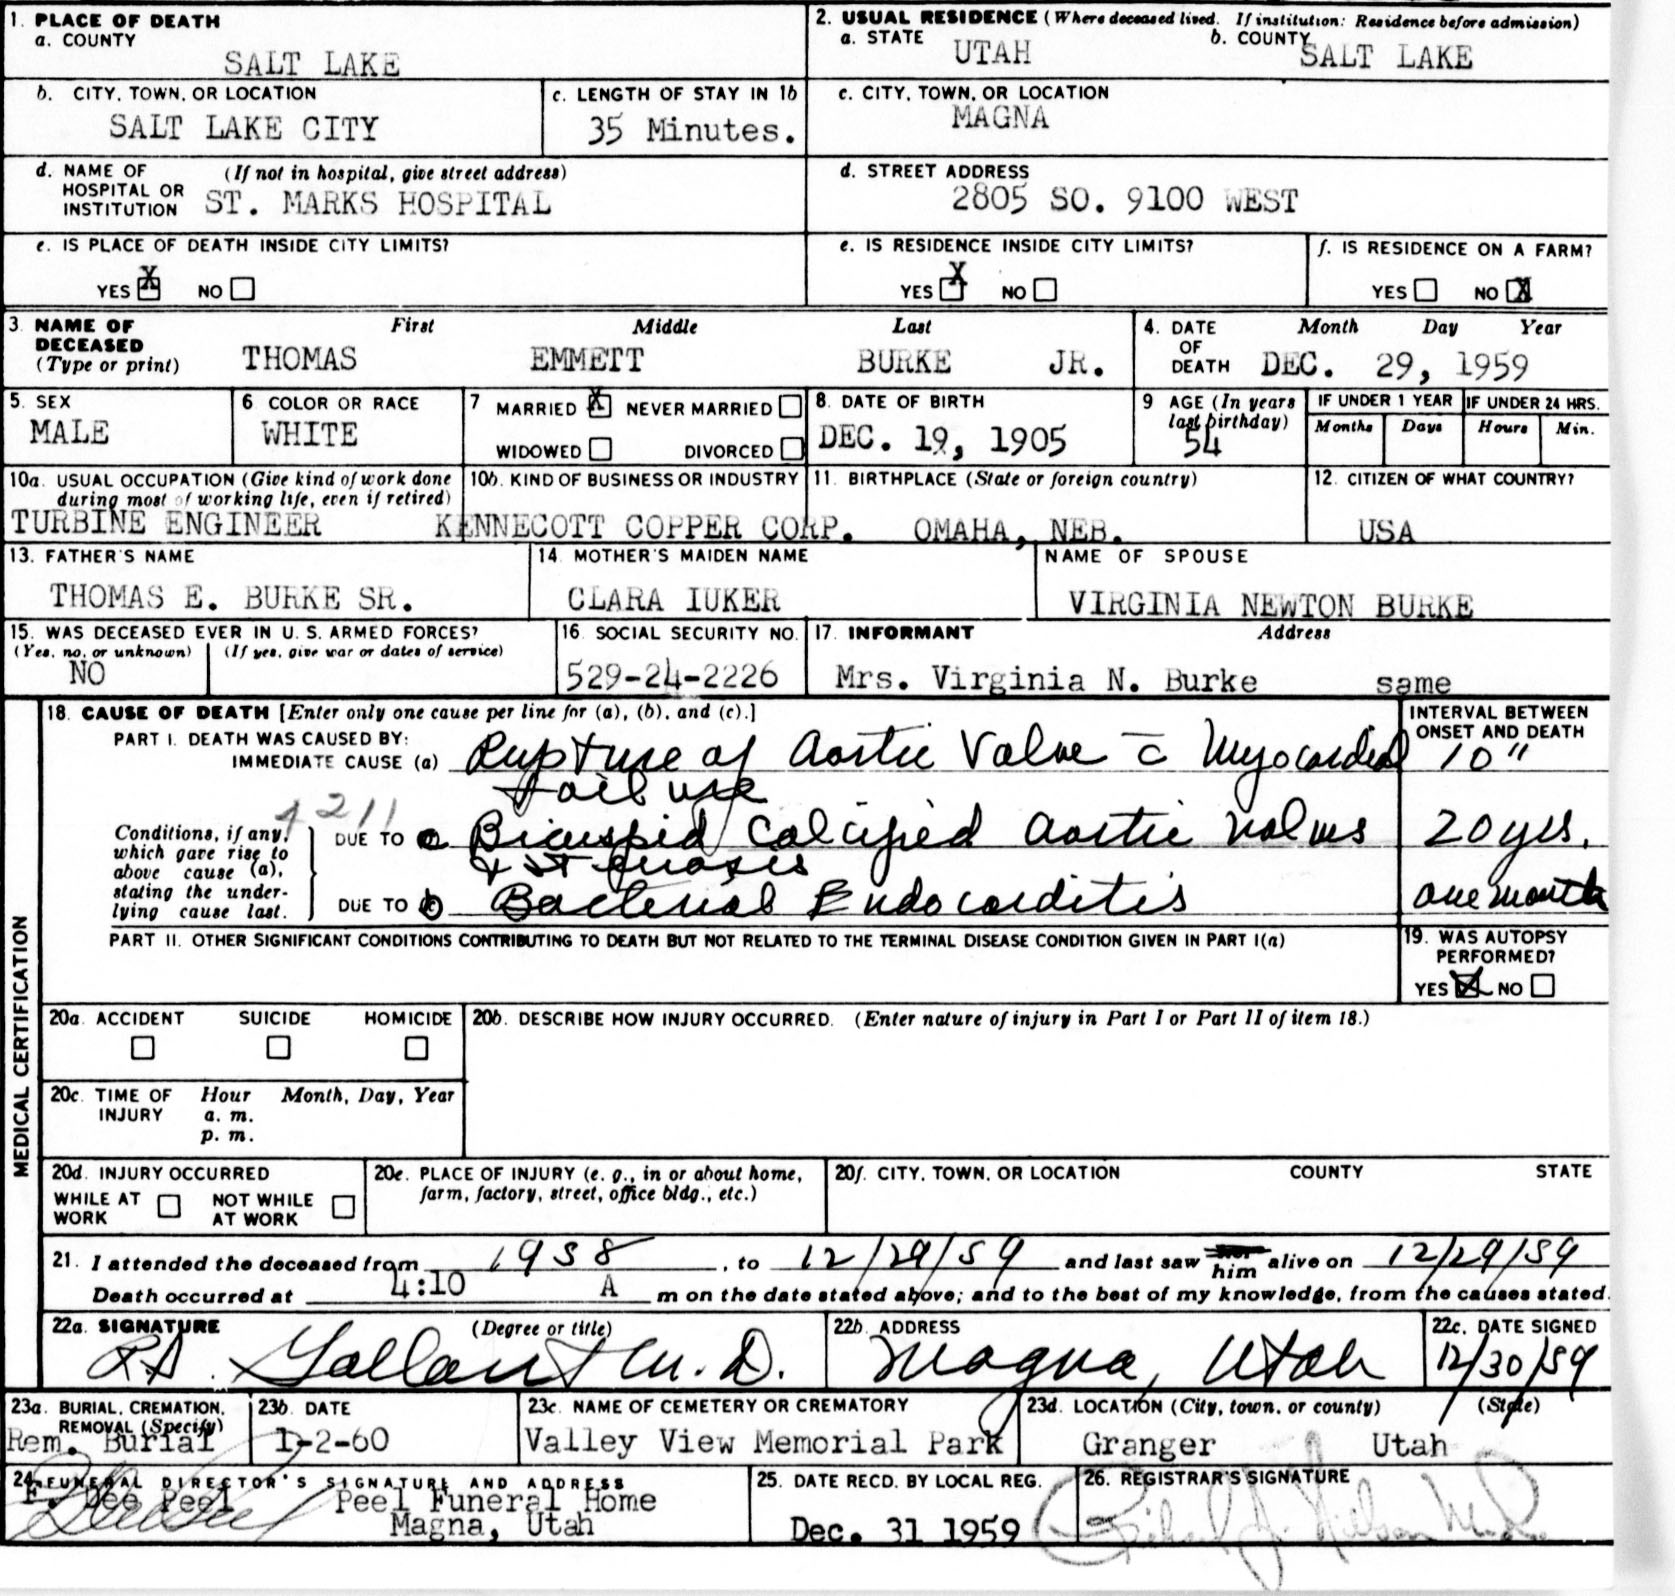 1. PLACE OF DEATH
a. COUNTY
SALT LAKE
2. USUAL RESIDENCE (Where deceased lived. If institution: Residence before admission)
a. STATE UTAH b. COUNTY SALT LAKE
b. CITY, TOWN, OR LOCATION
SALT LAKE CITY
c. LENGTH OF STAY IN 1b
35 Minutes.
c. CITY, TOWN, OR LOCATION
MAGNA
d. NAME OF HOSPITAL OR INSTITUTION (If not in hospital, give street address)
ST. MARKS HOSPITAL
d. STREET ADDRESS
2805 SO. 9100 WEST
e. IS PLACE OF DEATH INSIDE CITY LIMITS?
YES X NO
e. IS RESIDENCE INSIDE CITY LIMITS?
YES X NO
f. IS RESIDENCE ON A FARM?
YES NO X
3. NAME OF DECEASED (Type or print)
First Middle Last
THOMAS EMMETT BURKE JR.
4. DATE OF DEATH
Month Day Year
DEC. 29, 1959
5. SEX
MALE
6 COLOR OR RACE
WHITE
7 MARRIED X NEVER MARRIED
WIDOWED DIVORCED
8. DATE OF BIRTH
DEC. 19, 1905
9 AGE (In years last birthday)
54
IF UNDER 1 YEAR
Months Days
IF UNDER 24 HRS.
Hours Min.
10a. USUAL OCCUPATION (Give kind of work done during most of working life, even if retired)
TURBINE ENGINEER
10b. KIND OF BUSINESS OR INDUSTRY
KENNECOTT COPPER CORP.
11. BIRTHPLACE (State or foreign country)
OMAHA, NEB.
12. CITIZEN OF WHAT COUNTRY?
USA
13. FATHER'S NAME
THOMAS E. BURKE SR.
14. MOTHER'S MAIDEN NAME
CLARA IUKER
NAME OF SPOUSE
VIRGINIA NEWTON BURKE
15. WAS DECEASED EVER IN U. S. ARMED FORCES?
(Yes, no, or unknown) (If yes, give war or dates of service)
NO
16. SOCIAL SECURITY NO.
529-24-2226
17. INFORMANT Address
Mrs. Virginia N. Burke same
MEDICAL CERTIFICATION
18. CAUSE OF DEATH [Enter only one cause per line for (a), (b), and (c).]
INTERVAL BETWEEN ONSET AND DEATH
PART I. DEATH WAS CAUSED BY:
IMMEDIATE CAUSE (a) Rupture of Aortic Valve c̄ Myocardial 10"
failure
4211
Conditions, if any, which gave rise to above cause (a), stating the underlying cause last.
DUE TO a Bicuspid Calcified Aortic Valves 20 yrs.
& Stenosis
DUE TO b Bacterial Endocarditis one month
PART II. OTHER SIGNIFICANT CONDITIONS CONTRIBUTING TO DEATH BUT NOT RELATED TO THE TERMINAL DISEASE CONDITION GIVEN IN PART I(a)
19. WAS AUTOPSY PERFORMED?
YES X NO
20a. ACCIDENT SUICIDE HOMICIDE
20b. DESCRIBE HOW INJURY OCCURRED. (Enter nature of injury in Part I or Part II of item 18.)
20c. TIME OF INJURY Hour Month, Day, Year
a. m.
p. m.
20d. INJURY OCCURRED
WHILE AT WORK NOT WHILE AT WORK
20e. PLACE OF INJURY (e. g., in or about home, farm, factory, street, office bldg., etc.)
20f. CITY, TOWN, OR LOCATION COUNTY STATE
21. I attended the deceased from 1958, to 12/29/59 and last saw him alive on 12/29/59
Death occurred at 4:10 A m on the date stated above; and to the best of my knowledge, from the causes stated.
22a. SIGNATURE (Degree or title)
Gallant M. D.
22b. ADDRESS
Magna, Utah
22c. DATE SIGNED
12/30/59
23a. BURIAL, CREMATION, REMOVAL (Specify)
Rem. Burial
23b. DATE
1-2-60
23c. NAME OF CEMETERY OR CREMATORY
Valley View Memorial Park
23d. LOCATION (City, town, or county) (State)
Granger Utah
24. FUNERAL DIRECTOR'S SIGNATURE AND ADDRESS
Dee Peel Peel Funeral Home
Magna, Utah
25. DATE RECD. BY LOCAL REG.
Dec. 31 1959
26. REGISTRAR'S SIGNATURE